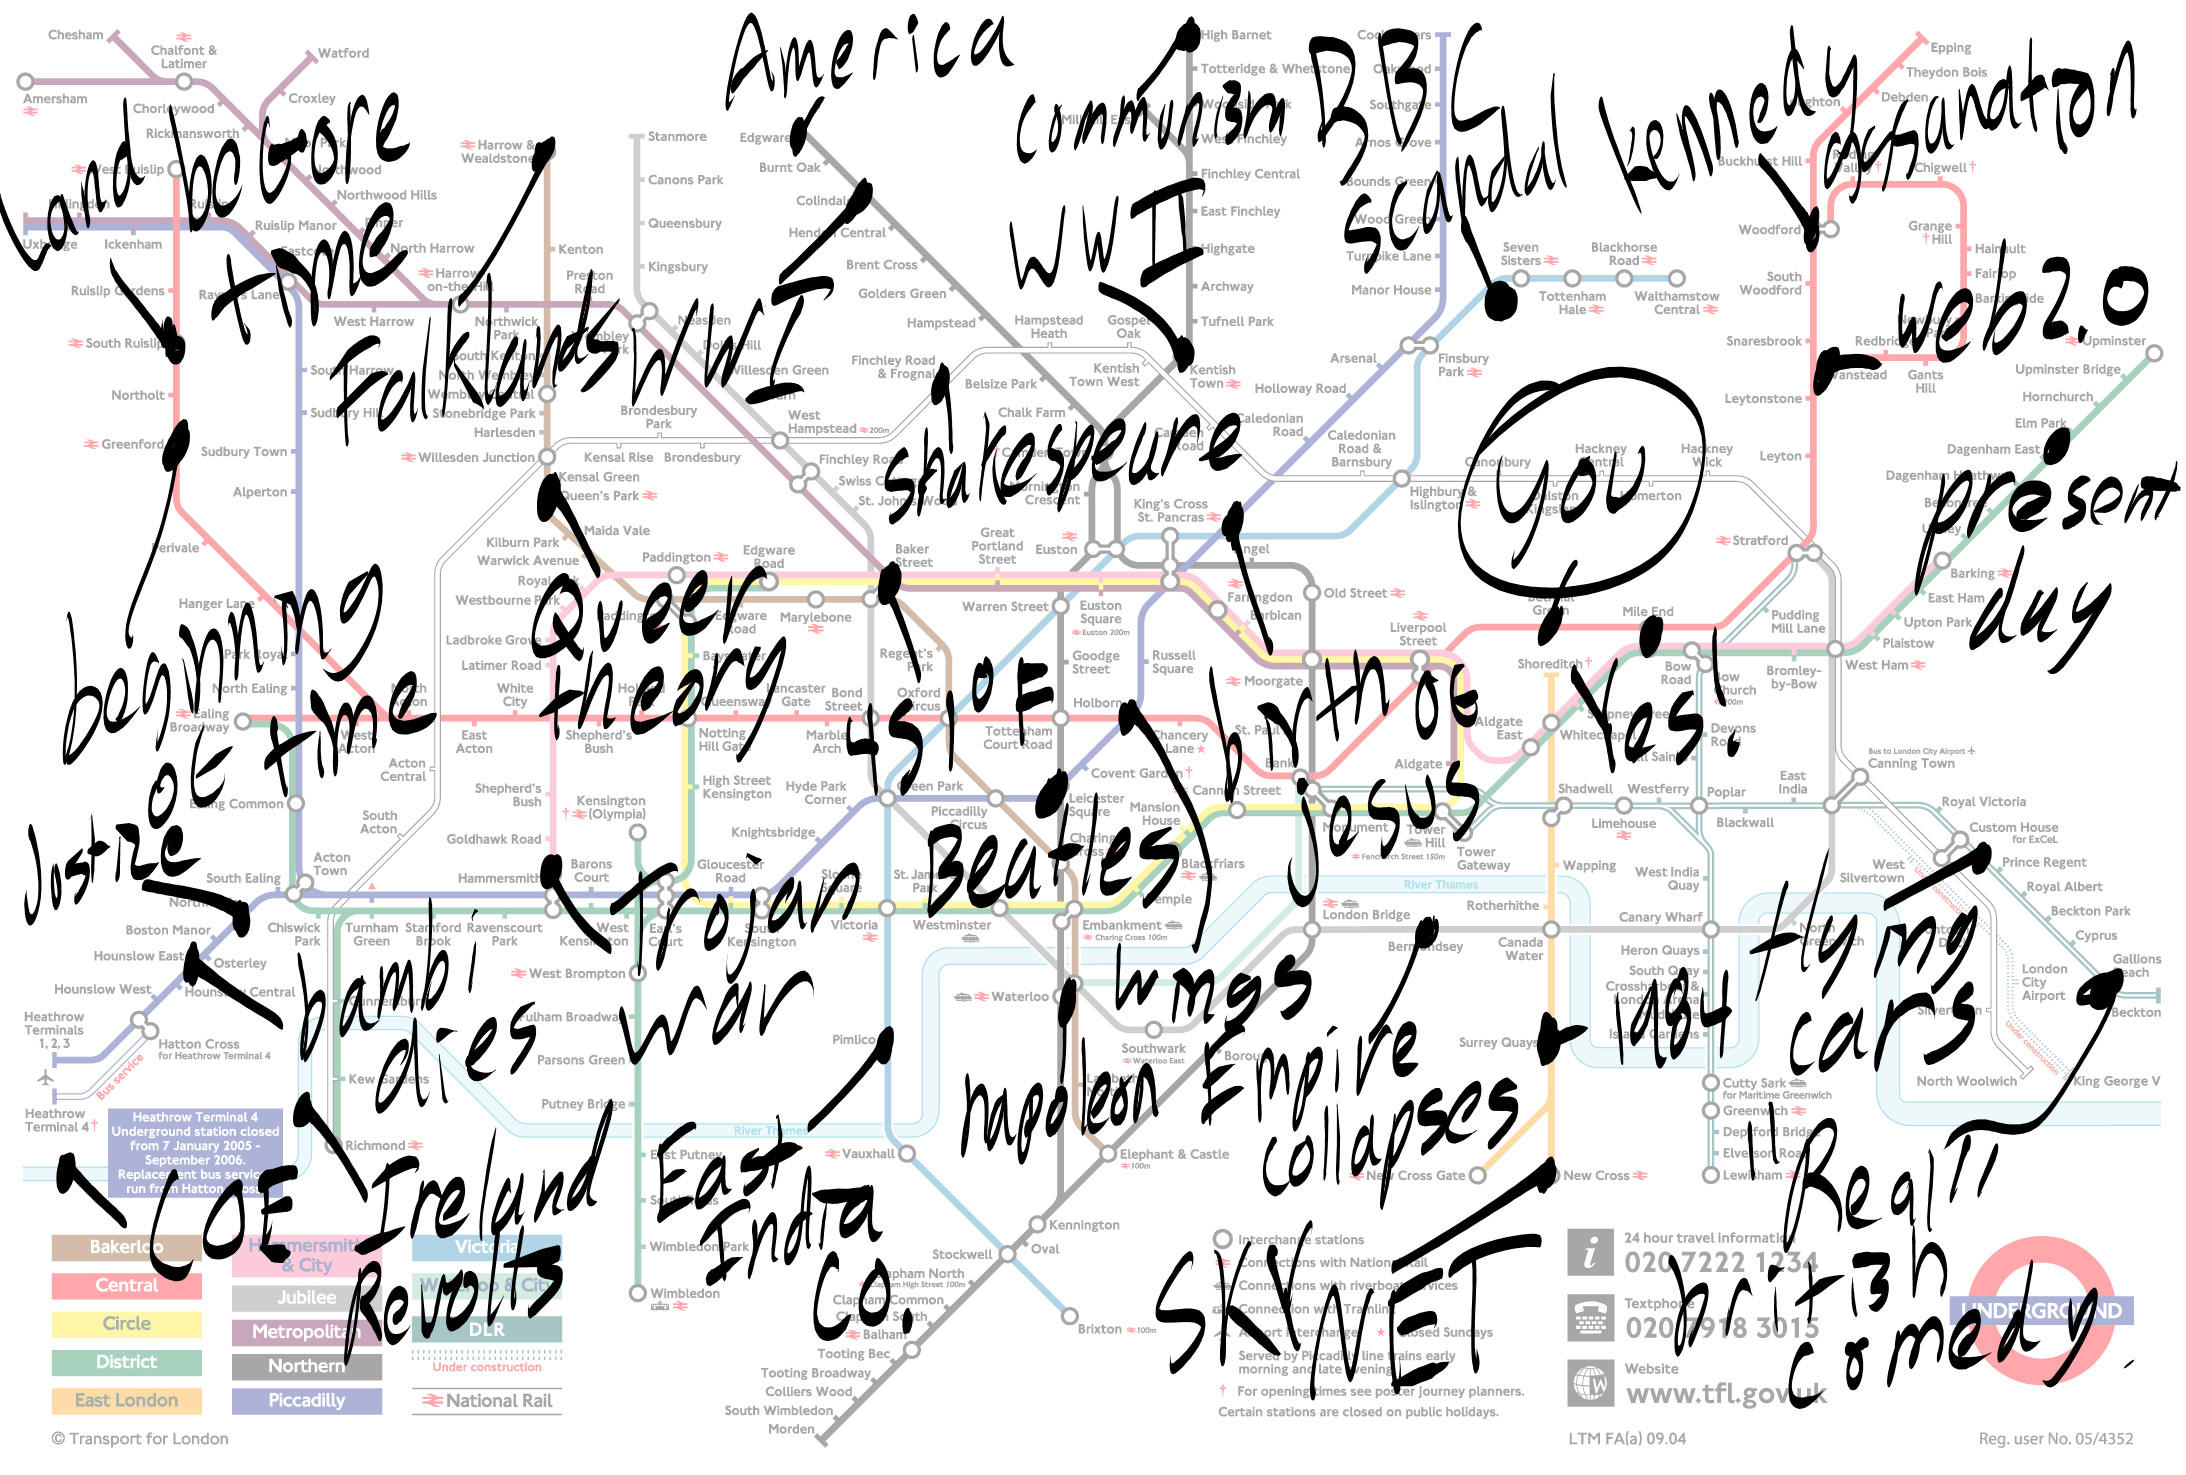 America
Communism
BBC
scandal
Kennedy
Land before
time
Falklands
WWI
WWII
Web 2.0
Shakespeare
you
present
day
beginning
of time
Queer
theory
451°F
birth of
Jesus
Yes!
Justize
bambi
dies
Trojan
war
Beatles
wings
flying
cars
1984
napoleon
Empire
collapses
COE
Ireland
Revolts
East
India
Co.
SKYNET
"Real"
british
comedy.
Chesham
Chalfont &
Latimer
Watford
Amersham
Chorleywood
Croxley
Rickmansworth
Northwood Hills
West Ruislip
Ickenham
Ruislip Manor
North Harrow
Harrow
on-the-Hill
Ruislip Gardens
West Harrow
Northwick
Park
South Ruislip
Northolt
Greenford
Sudbury Town
Alperton
Perivale
Hanger Lane
Park Royal
North Ealing
Ealing
Broadway
Harrow &
Wealdstone
Kenton
Preston
Road
Stonebridge Park
Harlesden
Willesden Junction
Kensal Green
Queen's Park
Kilburn Park
Maida Vale
Warwick Avenue
Stanmore
Canons Park
Queensbury
Kingsbury
Edgware
Burnt Oak
Colindale
Hendon Central
Brent Cross
Golders Green
Hampstead
Hampstead
Heath
Gospel
Oak
Finchley Road
& Frognal
Belsize Park
Chalk Farm
Kentish
Town West
Kentish
Town
West
Hampstead
200m
Brondesbury
Park
Kensal Rise
Brondesbury
High Barnet
Totteridge & Whetstone
West Finchley
Finchley Central
East Finchley
Highgate
Archway
Tufnell Park
Southgate
Arnos Grove
Bounds Green
Wood Green
Turnpike Lane
Manor House
Arsenal
Finsbury
Park
Holloway Road
Caledonian
Road
Caledonian
Road &
Barnsbury
Highbury &
Islington
Seven
Sisters
Blackhorse
Road
Tottenham
Hale
Walthamstow
Central
Epping
Theydon Bois
Debden
Buckhurst Hill
Chigwell
Grange
Hill
Hainault
Woodford
South
Woodford
Snaresbrook
Leytonstone
Leyton
Stratford
Gants
Hill
Upminster
Upminster Bridge
Hornchurch
Elm Park
Dagenham East
Barking
East Ham
Upton Park
Plaistow
West Ham
Hackney
Central
Hackney
Wick
King's Cross
St. Pancras
Euston
Great
Portland
Street
Baker
Street
Edgware
Road
Paddington
Marylebone
Warren Street
Euston
Square
Euston 200m
Goodge
Street
Russell
Square
Holborn
Farringdon
Barbican
Old Street
Moorgate
Liverpool
Street
Mile End
Shoreditch
Bow
Road
Pudding
Mill Lane
Bromley-
by-Bow
Westbourne Park
Ladbroke Grove
Latimer Road
White
City
East
Acton
Shepherd's
Bush
Notting
Hill Gate
Lancaster
Gate
Bond
Street
Oxford
Circus
Regent's
Park
Tottenham
Court Road
Chancery
Lane
Covent Garden
Leicester
Square
Piccadilly
Circus
Hyde Park
Corner
Knightsbridge
Green Park
High Street
Kensington
Kensington
(Olympia)
Shepherd's
Bush
Goldhawk Road
Hammersmith
Barons
Court
Gloucester
Road
Acton
Central
South
Acton
Ealing Common
Acton
Town
South Ealing
Boston Manor
Hounslow East
Osterley
Hounslow Central
Hounslow West
Heathrow
Terminals
1, 2, 3
Hatton Cross
for Heathrow Terminal 4
Bus service
Heathrow
Terminal 4
Heathrow Terminal 4
Underground station closed
from 7 January 2005 -
September 2006.
Chiswick
Park
Turnham
Green
Stamford
Brook
Ravenscourt
Park
West
Kensington
Earl's
Court
West Brompton
Fulham Broadway
Parsons Green
Putney Bridge
East Putney
Wimbledon Park
Wimbledon
Kew Gardens
Richmond
Victoria
Westminster
Embankment
Charing Cross 100m
Mansion
House
Cannon Street
Blackfriars
Temple
Monument
Tower
Hill
Fenchurch Street 150m
Tower
Gateway
Aldgate
Aldgate
East
London Bridge
Bermondsey
River Thames
River Thames
Waterloo
Southwark
Waterloo East
Pimlico
Vauxhall
Elephant & Castle
100m
Kennington
Oval
Stockwell
Brixton
100m
Clapham North
Clapham High Street 100m
Clapham Common
Clapham South
Balham
Tooting Bec
Tooting Broadway
Colliers Wood
South Wimbledon
Morden
Shadwell
Limehouse
Westferry
Poplar
Blackwall
East
India
Bus to London City Airport
Canning Town
Royal Victoria
Custom House
for ExCeL
Prince Regent
Royal Albert
Beckton Park
Cyprus
Gallions
Reach
Beckton
London
City
Airport
West
Silvertown
Under construction
North Woolwich
King George V
Wapping
Rotherhithe
Canada
Water
Surrey Quays
New Cross Gate
New Cross
West India
Quay
Canary Wharf
Heron Quays
South Quay
Cutty Sark
for Maritime Greenwich
Greenwich
Deptford Bridge
Elverson Road
Lewisham
Bakerloo
Central
Circle
District
East London
Hammersmith
& City
Jubilee
Metropolitan
Northern
Piccadilly
Victoria
Waterloo & City
DLR
Under construction
National Rail
Interchange stations
Connections with National Rail
Connections with riverboat services
Connection with Tramlink
Airport interchange
Closed Sundays
Served by Piccadilly line trains early
morning and late evening
† For opening times see poster journey planners.
Certain stations are closed on public holidays.
24 hour travel information
020 7222 1234
Textphone
020 7918 3015
Website
www.tfl.gov.uk
UNDERGROUND
© Transport for London
LTM FA(a) 09.04
Reg. user No. 05/4352